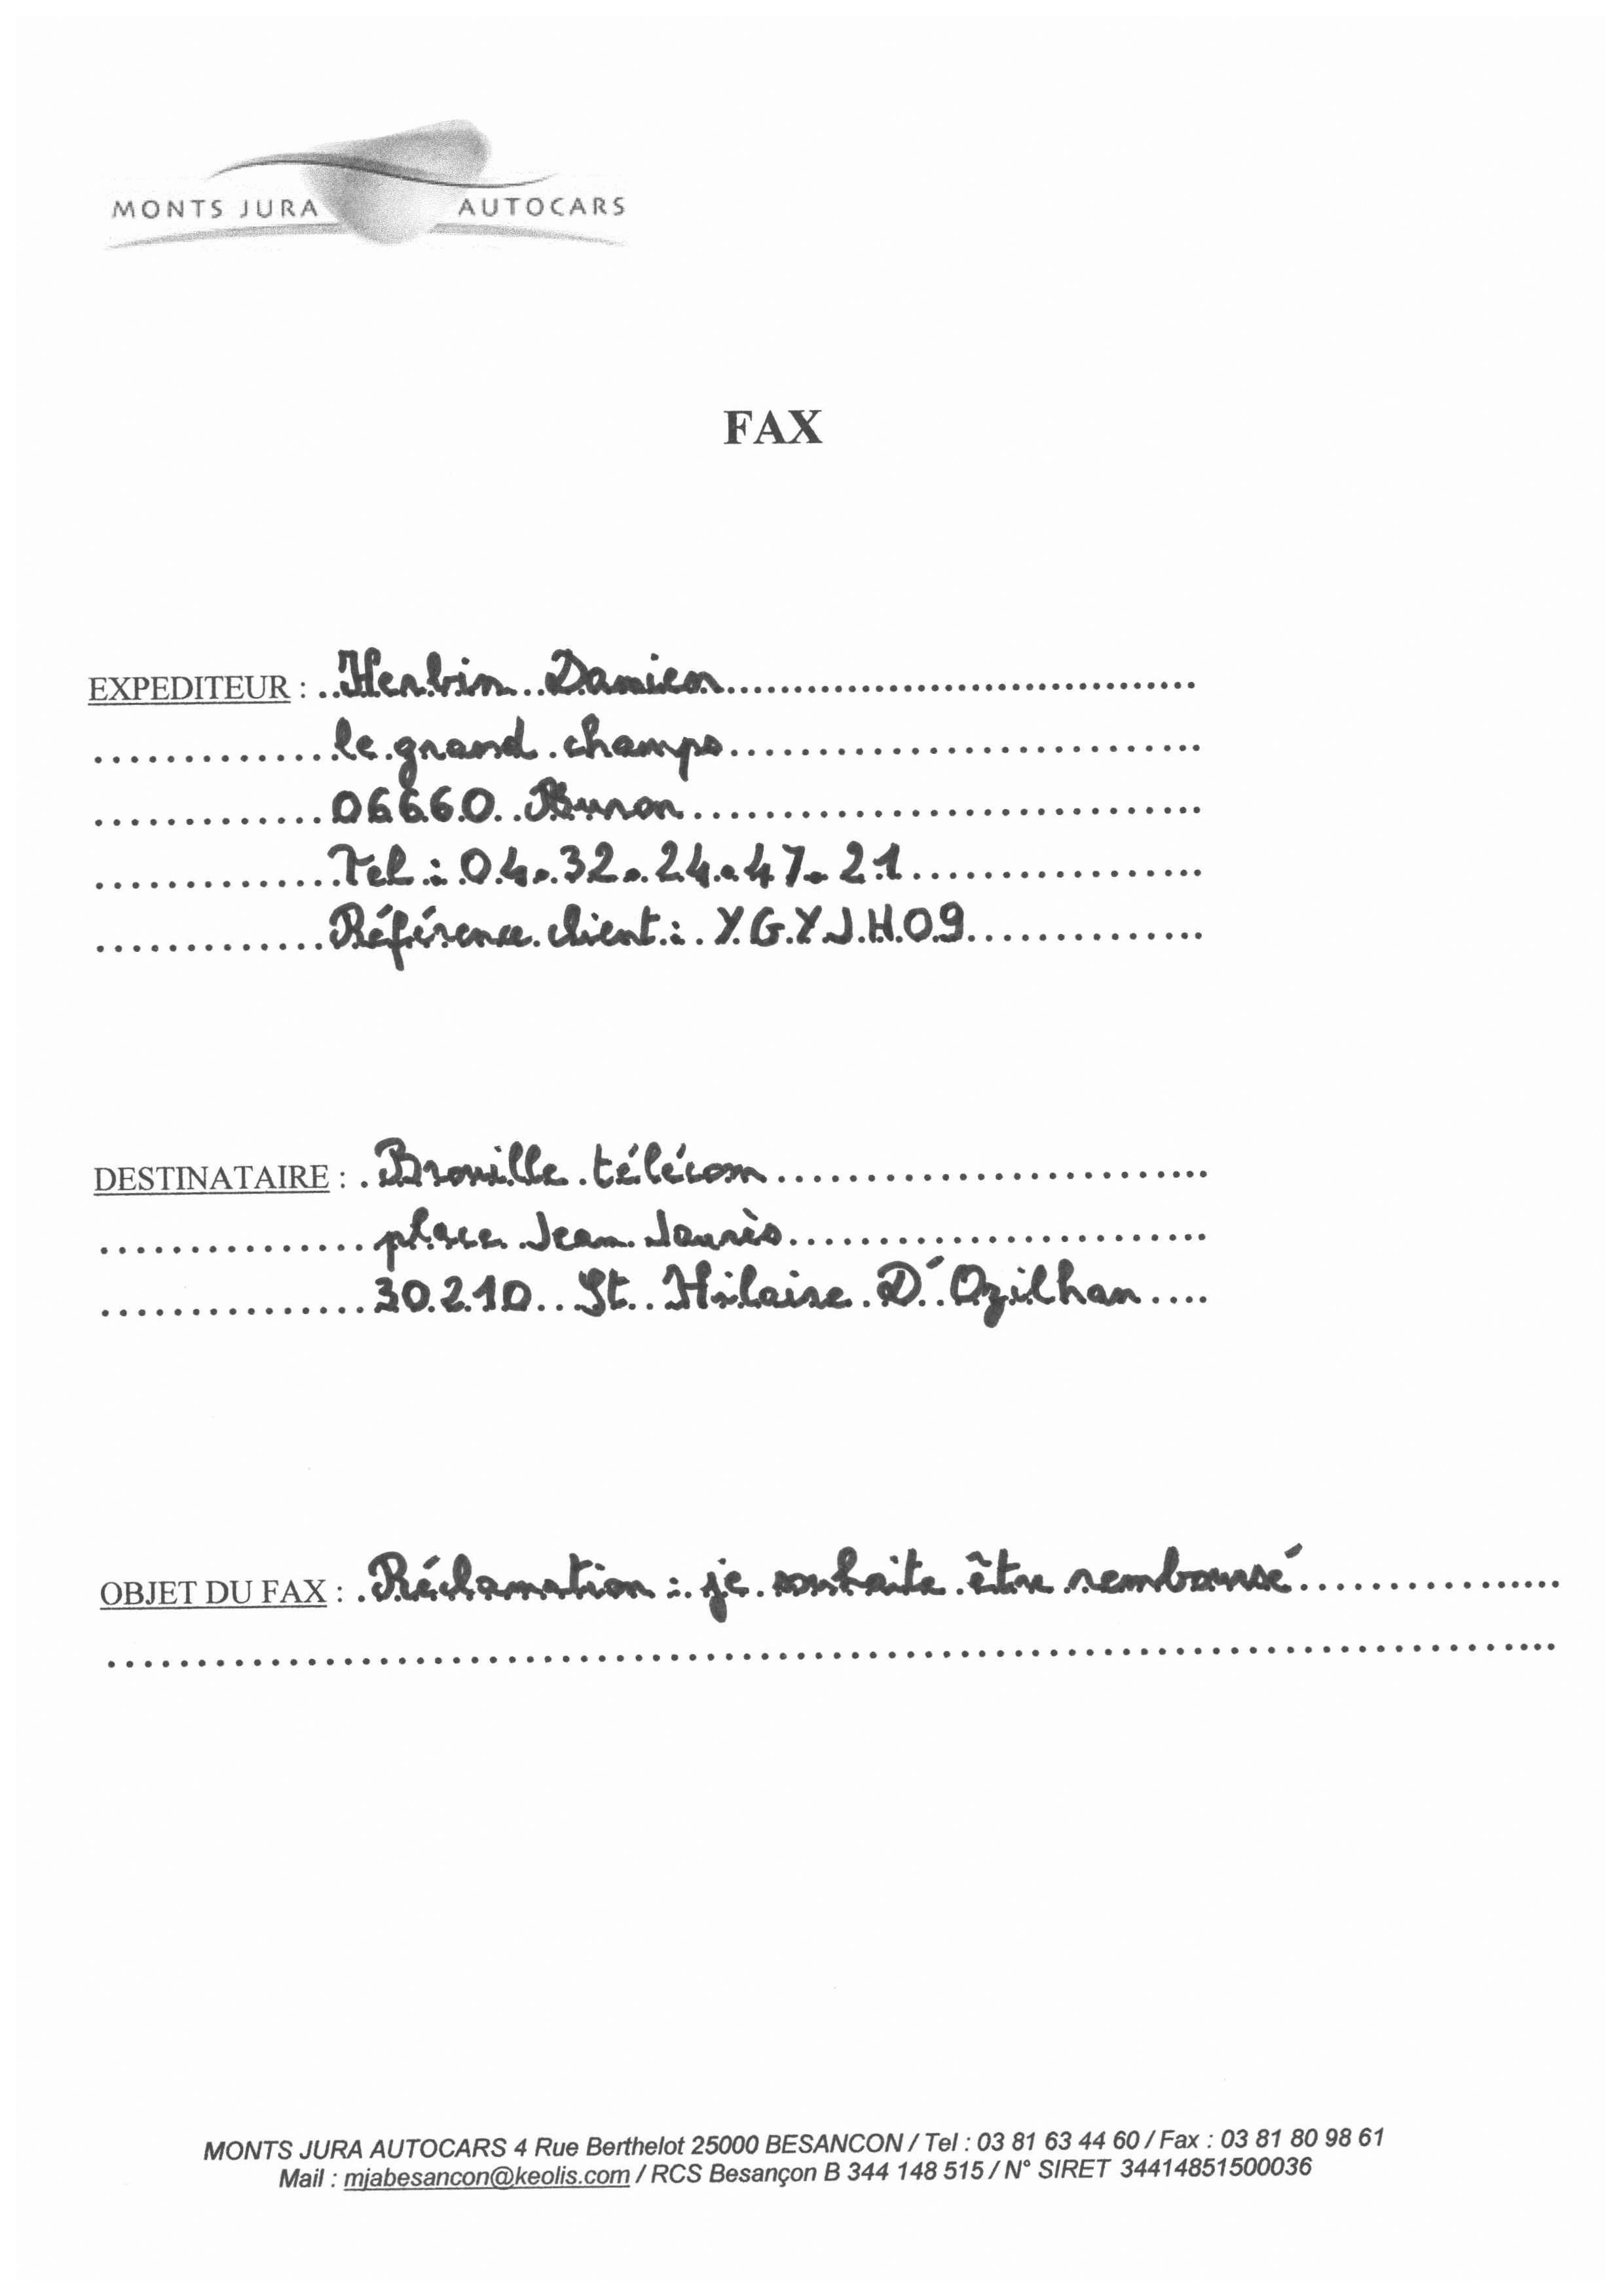 MONTS JURA AUTOCARS
FAX
EXPEDITEUR : Herbin Damien
le grand champs
06660 Buron
Tel : 04.32.24.47.21
Référence client : YGYJH09
DESTINATAIRE : Brouille télécom
place Jean Jaurès
30210 St Hilaire D'Ozilhan
OBJET DU FAX : Réclamation : je souhaite être remboursé
MONTS JURA AUTOCARS 4 Rue Berthelot 25000 BESANCON / Tel : 03 81 63 44 60 / Fax : 03 81 80 98 61
Mail : mjabesancon@keolis.com / RCS Besançon B 344 148 515 / N° SIRET 34414851500036